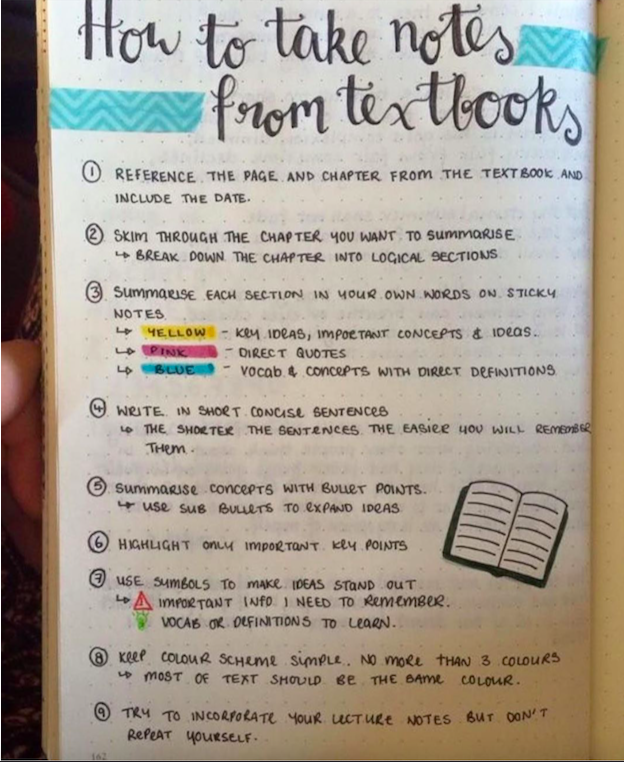 How to take notes
from textbooks
1 REFERENCE THE PAGE AND CHAPTER FROM THE TEXTBOOK AND
INCLUDE THE DATE.
2 SKIM THROUGH THE CHAPTER YOU WANT TO SUMMARISE
↳ BREAK DOWN THE CHAPTER INTO LOGICAL SECTIONS
3 SUMMARISE EACH SECTION IN YOUR OWN WORDS ON STICKY
NOTES
↳ YELLOW - KEY IDEAS, IMPORTANT CONCEPTS & IDEAS.
↳ PINK - DIRECT QUOTES
↳ BLUE - VOCAB & CONCEPTS WITH DIRECT DEFINITIONS
4 WRITE IN SHORT CONCISE SENTENCES
↳ THE SHORTER THE SENTENCES THE EASIER YOU WILL REMEMBER
THEM.
5 SUMMARISE CONCEPTS WITH BULLET POINTS.
↳ USE SUB BULLETS TO EXPAND IDEAS
6 HIGHLIGHT ONLY IMPORTANT KEY POINTS
7 USE SYMBOLS TO MAKE IDEAS STAND OUT
↳ IMPORTANT INFO I NEED TO REMEMBER.
VOCAB OR DEFINITIONS TO LEARN.
8 KEEP COLOUR SCHEME SIMPLE. NO MORE THAN 3 COLOURS
↳ MOST OF TEXT SHOULD BE THE SAME COLOUR.
9 TRY TO INCORPORATE YOUR LECTURE NOTES BUT DON'T
REPEAT YOURSELF.
162